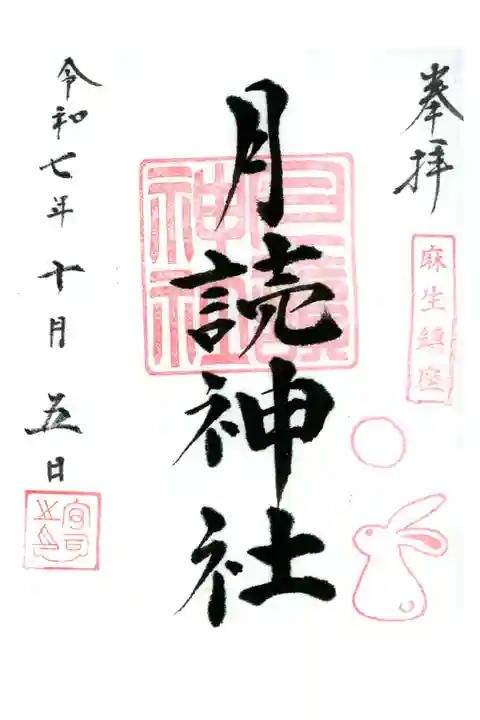 奉拝
麻生鎮座
月読神社
月讀神社
令和七年十月五日
宮司之印